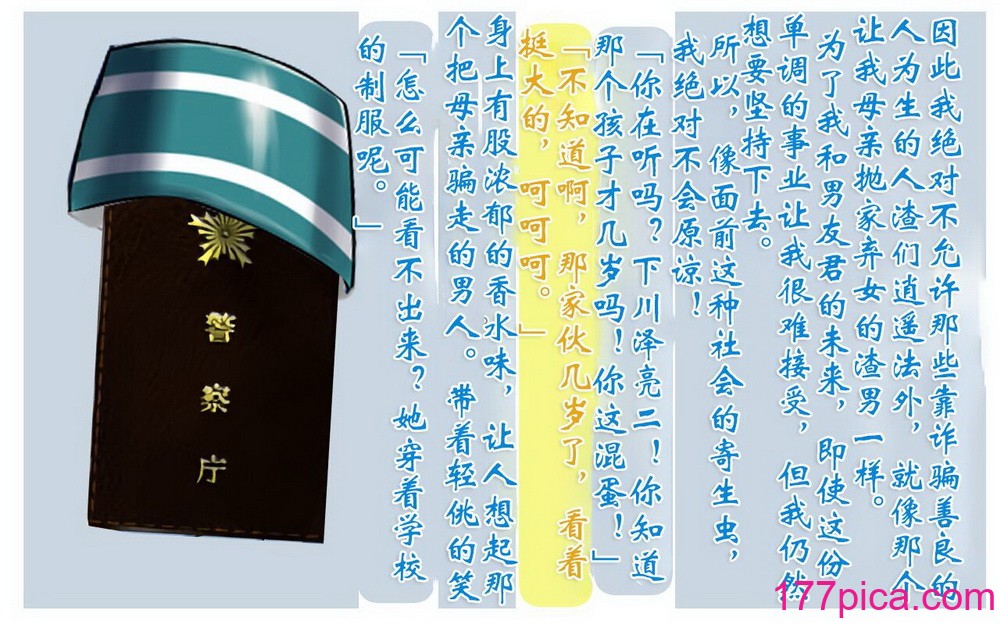 因此我绝对不允许那些靠诈骗善良的
人为生的人渣们逍遥法外，就像那个
让我母亲抛家弃女的渣男一样。
为了我和男友君的未来，即使这份
单调的事业让我很难接受，但我仍然
想要坚持下去。
所以，像面前这种社会的寄生虫，
我绝对不会原谅！
「你在听吗？下川泽亮二！你知道
那个孩子才几岁吗！你这混蛋！」
「不知道啊，那家伙几岁了，看着
挺大的，呵呵呵。」
身上有股浓郁的香水味，让人想起那
个把母亲骗走的男人。带着轻佻的笑
「怎么可能看不出来？她穿着学校
的制服呢。」
警察庁
177pica.com